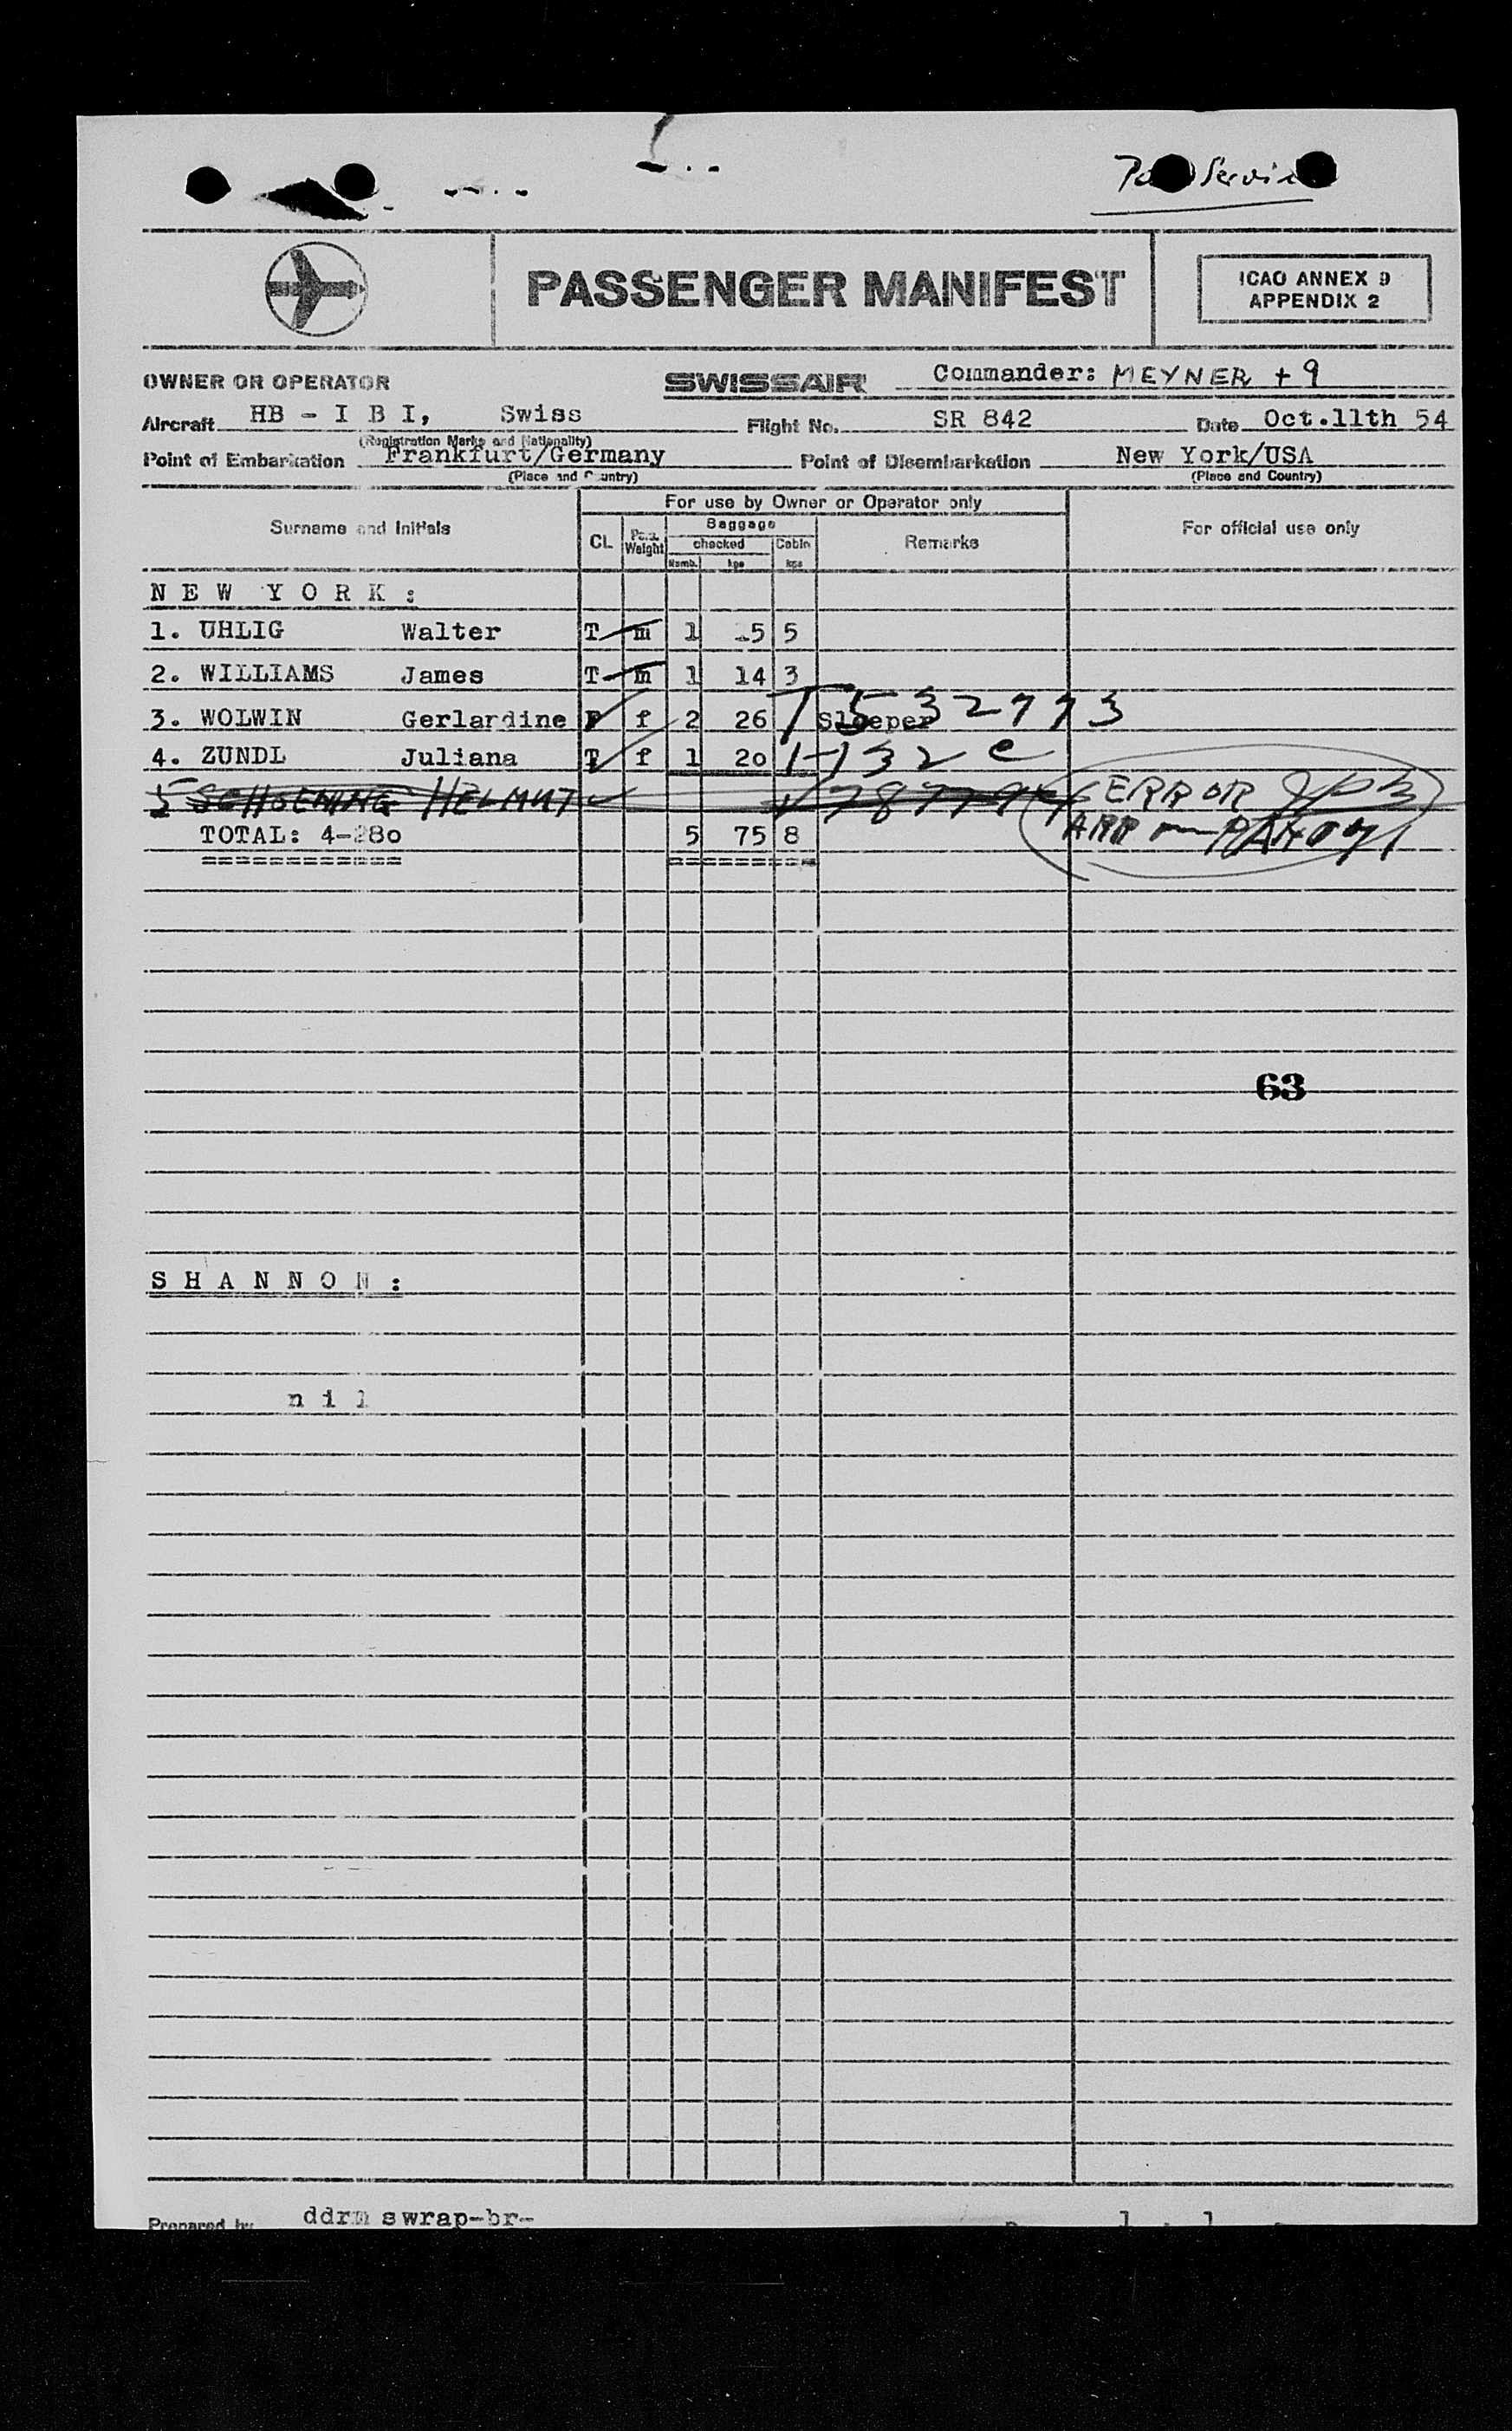 PASSENGER MANIFEST
ICAO ANNEX 9
APPENDIX 2
OWNER OR OPERATOR SWISSAIR Commander: MEYNER + 9
Aircraft HB - I B I, Swiss Flight No. SR 842 Date Oct.11th 54
(Registration Marks and Nationality)
Point of Embarkation Frankfurt/Germany Point of Disembarkation New York/USA
(Place and Country) (Place and Country)
For use by Owner or Operator only
Surname and Initials CL Pass. Weight Baggage checked Numb. kgs Cabin kgs Remarks For official use only
N E W Y O R K :
1. UHLIG Walter T m 1 15 5
2. WILLIAMS James T m 1 14 3
3. WOLWIN Gerlardine F f 2 26 Sleeper T 532773
4. ZUNDL Juliana T f 1 2o 1-132 e
5 SCHOENING HELMUT ERROR
TOTAL: 4-28o 5 75 8 ARR
============ =========
63
S H A N N O N :
n i l
Prepared by ddrm swrap-br-